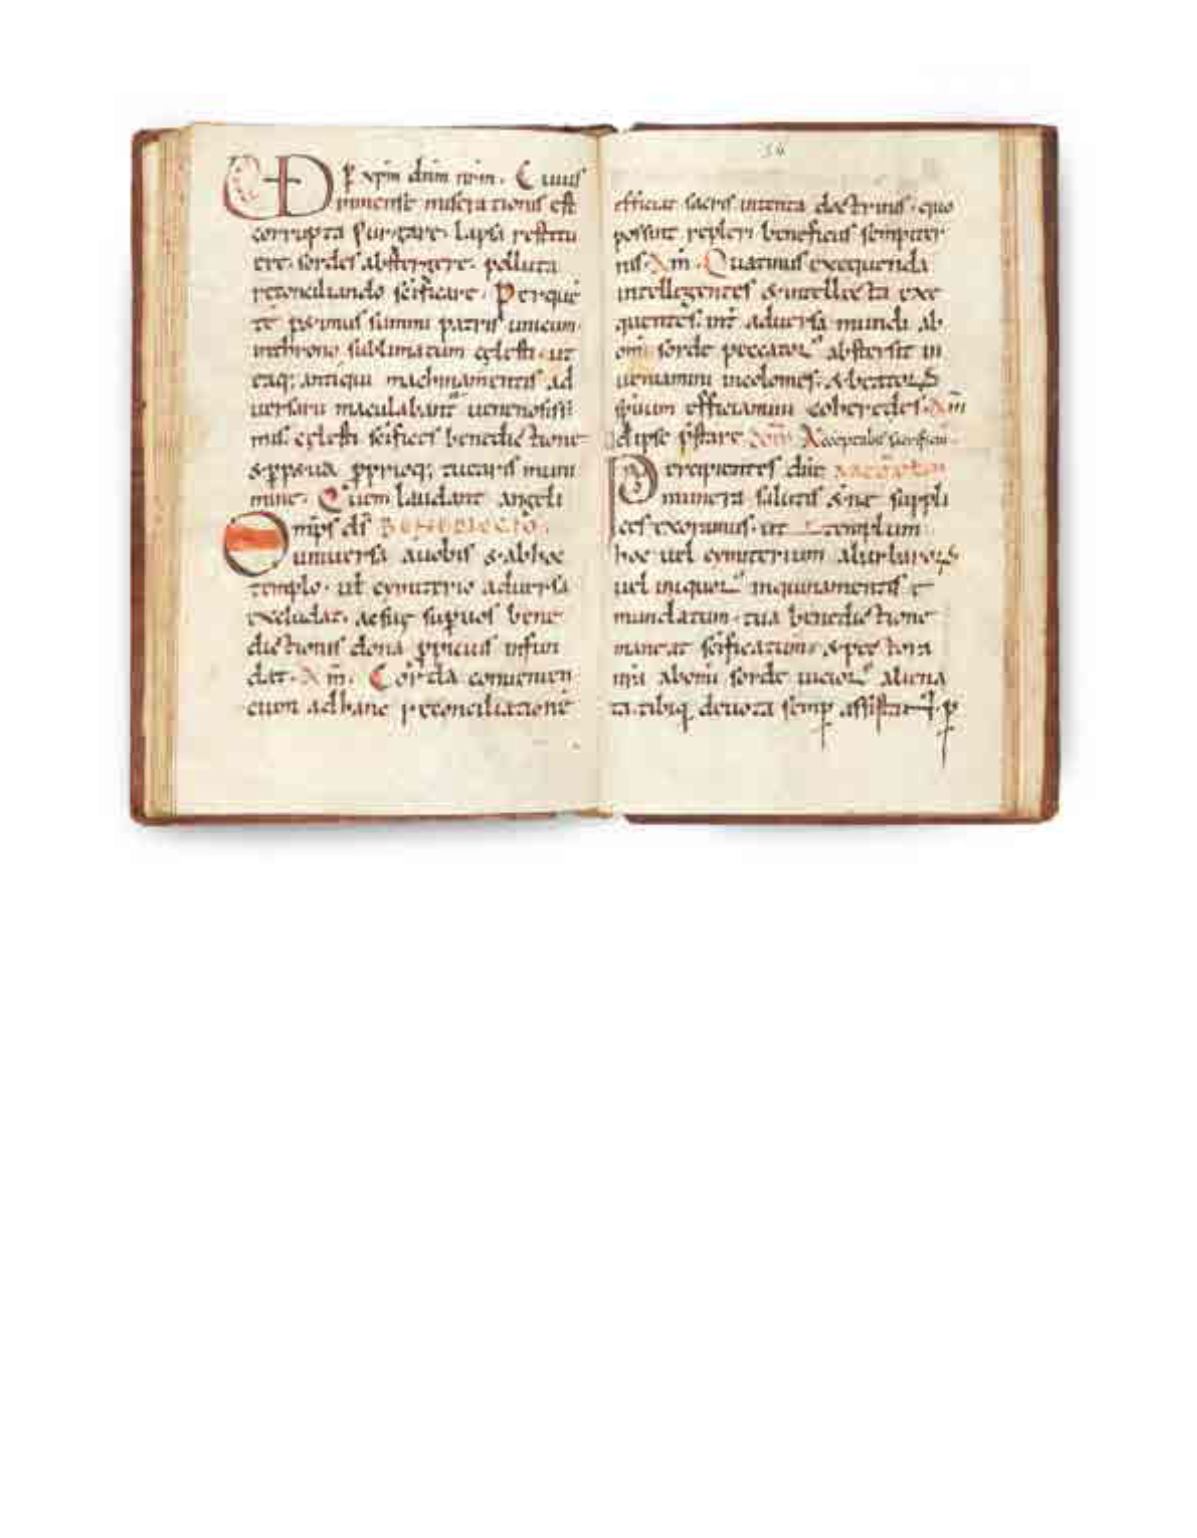 p xpm dnm nrm. Cuius
inmense miserationis est
corrupta purgare. lapsa restitu
ere. sordes abstergere. polluta
reconciliando scificare. Per que
te petimus summi patris unicum
inthrono sublimatum cęlesti. ut
antiqui machinamentis ad
uersarii maculabant uenenosissi
mis. cęlesti scifices benedictione
& ppetua tuearis muni
mine. Quem laudant angeli
Omps ds BENEDICTIO.
uniuersa auobis & abhoc
templo. ul cymiterio aduersa
excludat. aesuę supuos bene
dictionis dona ppicius infun
dat. Am. Corda conuenien
cium adhanc reconciliatione
56
efficiat sacris intenta doctrinis. quo
possint repleri beneficiis sempiter
nis. Am. Quatinus exequenda
intellegentes & intellecta exe
quentes. int aduersa mundi ab
omi sorde peccator abstersit in
ueniamini incolomes. & beator
spuum efficiamini coheredes. Am
dipse pstare. Acceptabile sacrificiu
Percipientes dne
munera salutis &ne suppli
ces exoramus. ut templum
hoc uel cymiterium
uel iniquor inquinamentis e
mundatum. tua benedictione
maneat scificatum. & pectora
nra abomi sorde uicior aliena
ta. tibiq deuota semp assistant. p